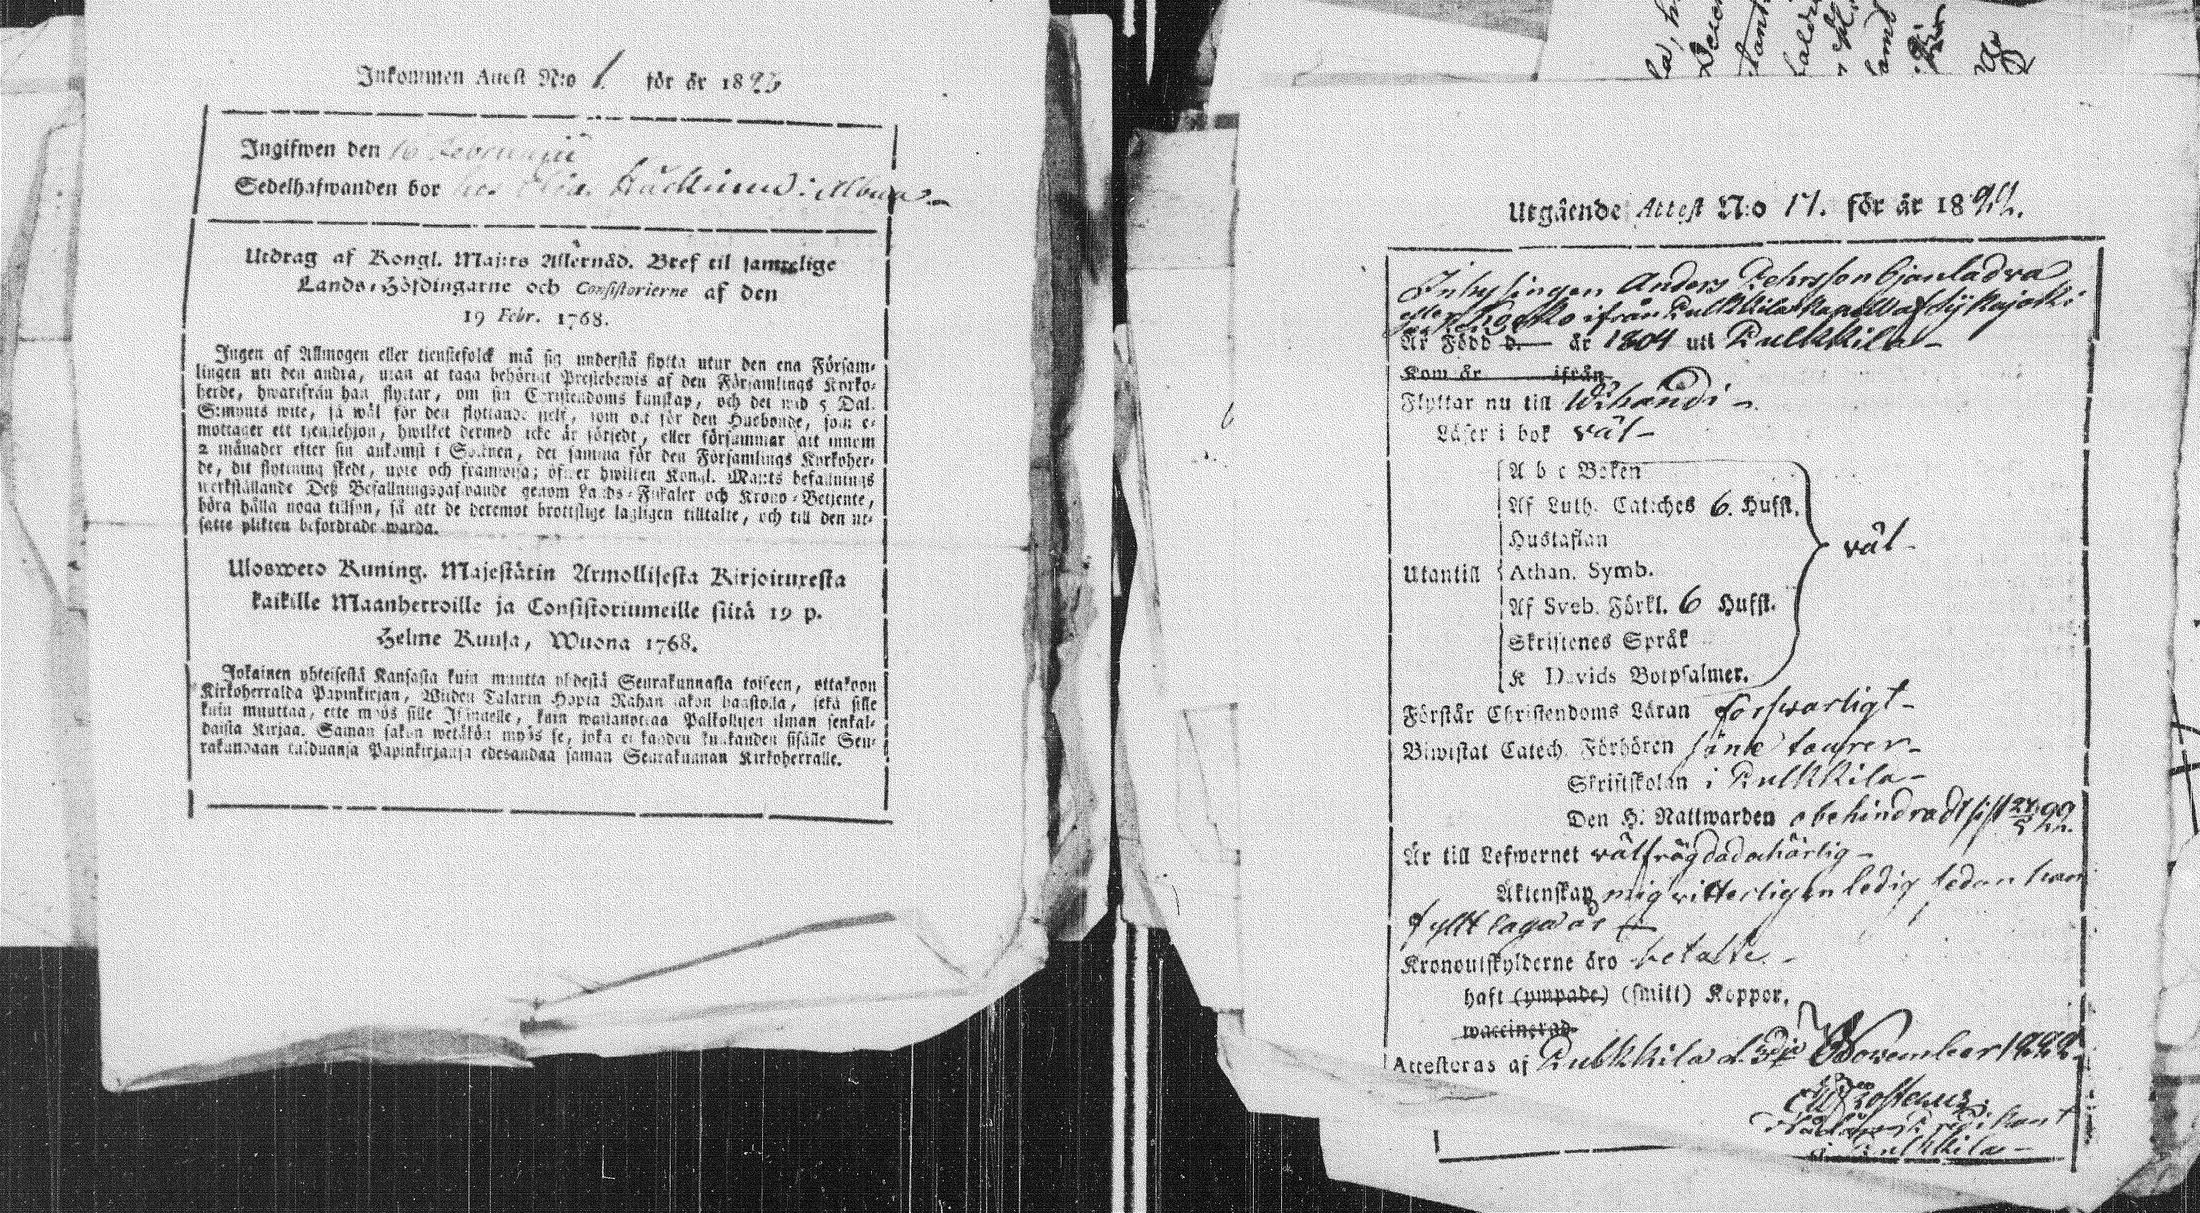 Inkommen Attest N:o 1. för år 1823
Ingifwen den 16 Februarii
Sedelhafwanden bor hos
Utdrag af Kongl. Maj:ts Allernåd. Bref til samtelige
Lands-Höfdingarne och Consistorierne af den
19 Febr. 1768.
Ingen af Allmogen eller tienstefolck må sig understå flytta utur den ena Församlingen
lingen uti den andra, utan at taga behörigt Prestebewis af den Församlings Kyrko-
herde, hwarifrån han flyttar, om sin Christendoms kunskap, och det wid 5 Dal.
S:mynts wite, så wäl för den flyttande sielf, som ock för den Husbonde, som e-
mottager ett tienstehjon, hwilket dermed icke är försedt, eller försummar att innom
2 månader efter sin ankomst i Socknen, det samma för den Församlings Kyrkoher-
de, dit flyttning skedt, upte och framwisa; öfwer hwilket Kongl. Maj:ts befallnings
werkställande Deß Befallningshafwande genom Lands-Fiskaler och Krono-Betjente,
böra hålla noga tillsyn, så att de deremot brottslige lagligen tilltalte, och till den ut-
satte plikten befordrade warda.
Ulosweto Kuning. Majestätin Armollisesta Kirjoituresta
kaikille Maanherroille ja Consistoriumeille siitä 19 p.
Helme Kuusa, Wuona 1768.
Jokainen yhteisestä Kansasta kuin muutta yhdestä Seurakunnasta toiseen, ottakoon
Kirkoherralda Papinkirjan, Wiiden Talarin Hopia Rahan sakon haastolla, sekä sille
kuin muuttaa, ette myös sille Isännelle, kuin wastanottaa Palkollisen ilman senkal-
daista Kirjaa. Saman sakon wetäkön myös se, joka ei kahden kuukauden sisälle Seu-
rakundaan tulduansa Papinkirjansa edesandaa saman Seurakunnan Kirkoherralle.
Utgående Attest N:o 17. för år 1822.
Inhysingen Anders Pehrsson Ojanladwa
eller ifrån Pulkkila Kapell af Sijkajoki
Är Född d. år 1804 uti Pulkkila
Kom år ifrån
Flyttar nu till Wihandi
Läser i bok väl
A b c Boken
Af Luth. Cateches 6. Hufst.
Hustaflan
Utantill Athan. Symb.
väl
Af Sveb. Förkl. 6 Hufst.
Skriftenes Språk
K Davids Botpsalmer.
Förstår Christendoms Läran försvarligt
Biwistat Catech. Förhören
Skriftskolan i Pulkkila
Den H. Nattwarden obehindradt sist 22
Är till Lefwernet välfrägdad och ärlig
Äktenskap mig vitterligen ledig sedan han
fyllt laga år
Kronoutskylderne äro betalte.
haft (ympade) (smitt) Koppor.
waccinerad
Attesteras af Pulkkila d. November 1822.
Frosterus
Predikant
i Pulkkila